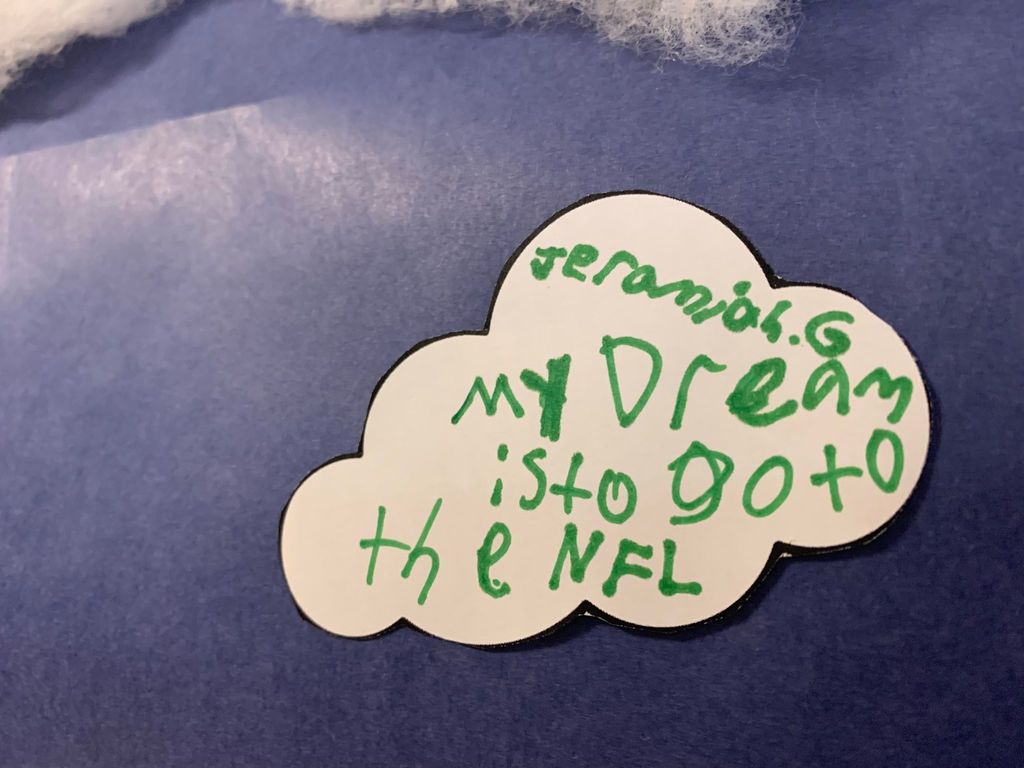 Jeramiah.G
My Dream
is to go to
the NFL